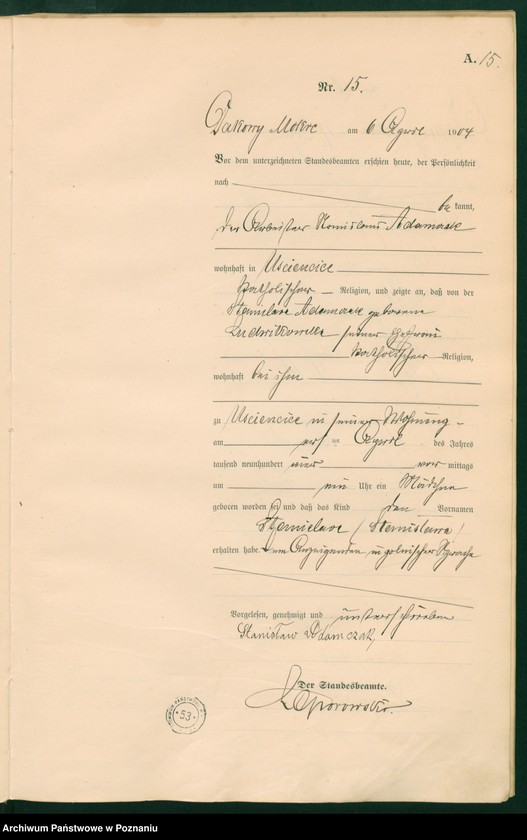 A. 15.
Nr. 15.
Dakowy Mokre am 6 April 1904
Vor dem unterzeichneten Standesbeamten erschien heute, der Persönlichkeit
nach
be kannt,
der Arbeiter Stanislaus Adamczak
wohnhaft in Usciencice
katholischer Religion, und zeigte an, daß von der
Stanislava Adamczak geborene
seiner Ehefrau
katholischer Religion,
wohnhaft bei ihm
zu Usciencice in seiner Wohnung
am ersten April des Jahres
tausend neunhundert vier vor mittags
um ein Uhr ein Mädchen
geboren worden sei und daß das Kind den Vornamen
Stanislava (Stanisława)
erhalten habe. dem Anzeigenden in polnischer Sprache
Vorgelesen, genehmigt und unterschrieben
Stanisław Adamczak
Der Standesbeamte.
53
Archiwum Państwowe w Poznaniu